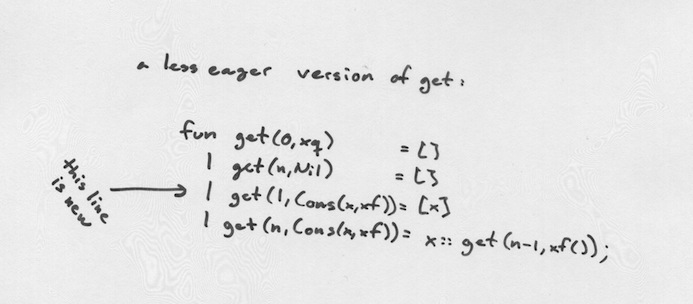 a less eager version of get:
fun get(0,xq) = []
| get(n,Nil) = []
this line
is new
| get(1,Cons(x,xf)) = [x]
| get(n,Cons(x,xf)) = x:: get(n-1,xf());